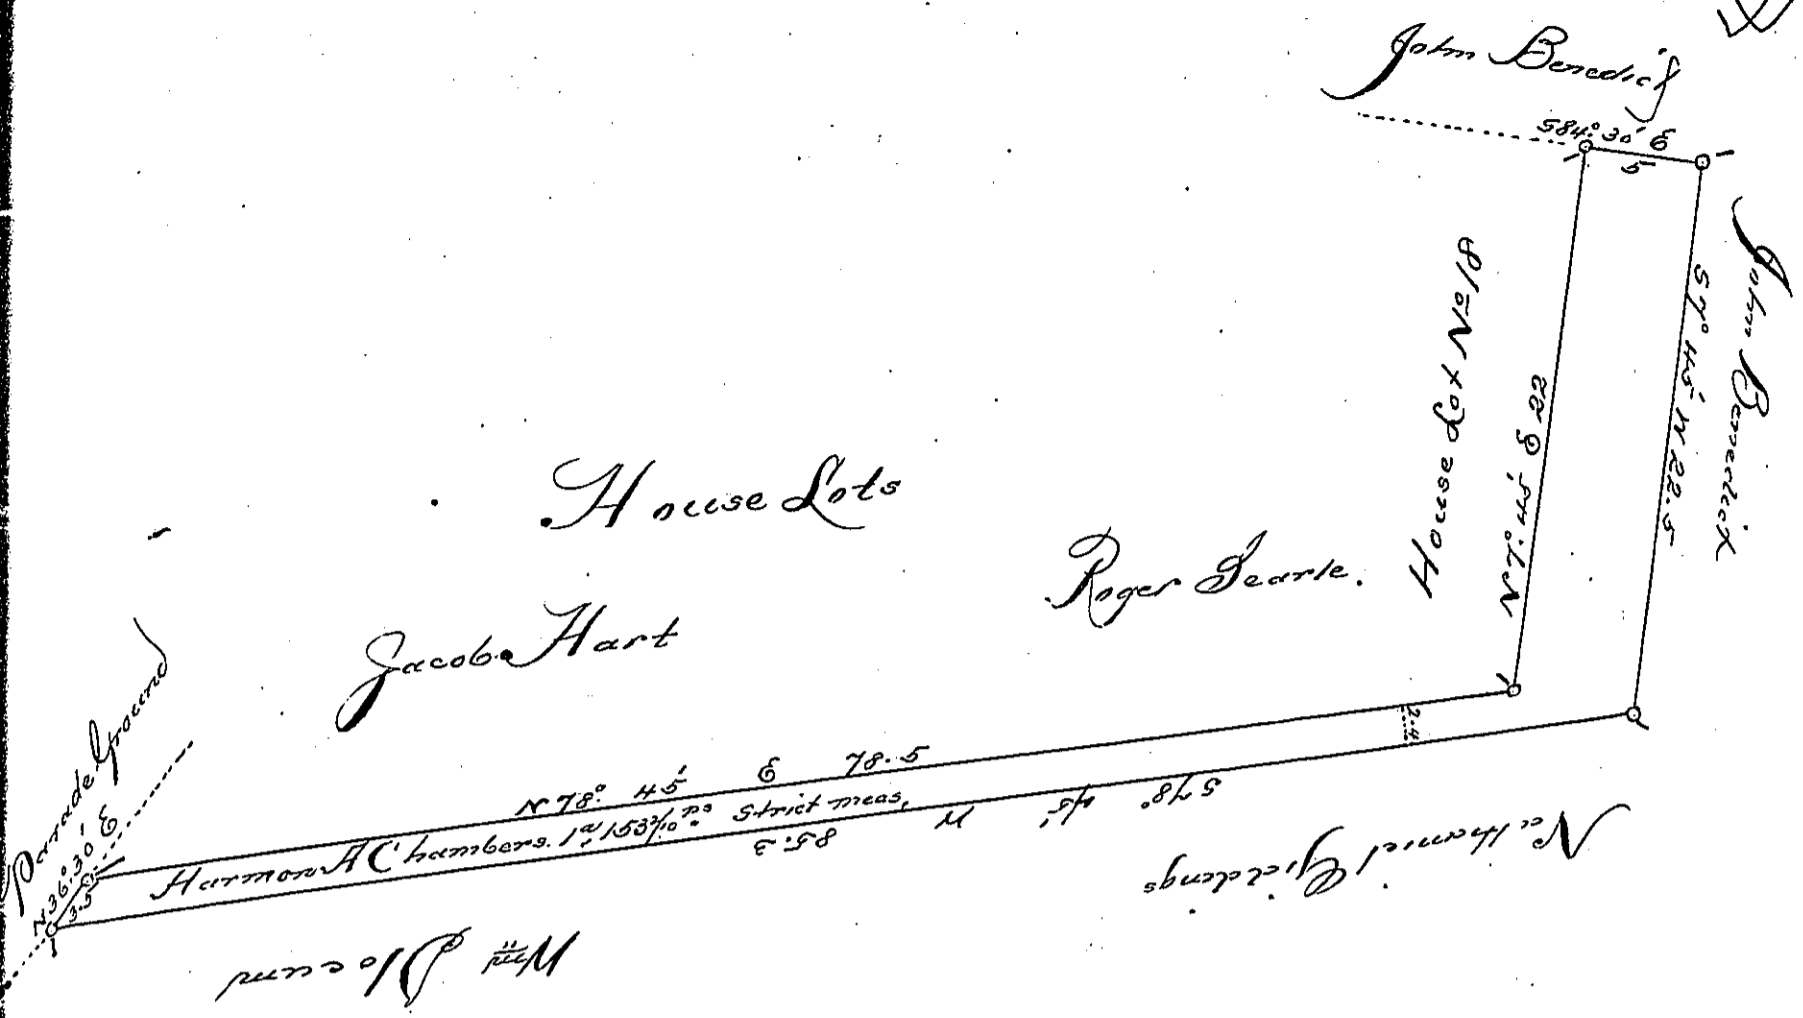 John Benedict
S84° 30' E
5
John Benedict
S7° 45' W 22.5
House Lot No 18
N7° 45' E 22
House Lots
Roger Searle.
Jacob Hart
Parade Ground
N36° 30' E
3.5
N 78° 45' E 78.5
2.4
Harmon A Chambers. 1a 153 2/10 ps Strict meas,
S78° 45' W 85.3
Nathaniel Giddings
Wm Slocum